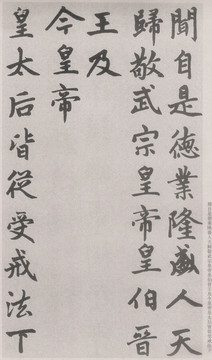 聞自是德業隆盛人天
歸敬武宗皇帝皇伯晉
王及
今皇帝
皇太后皆從受戒法下